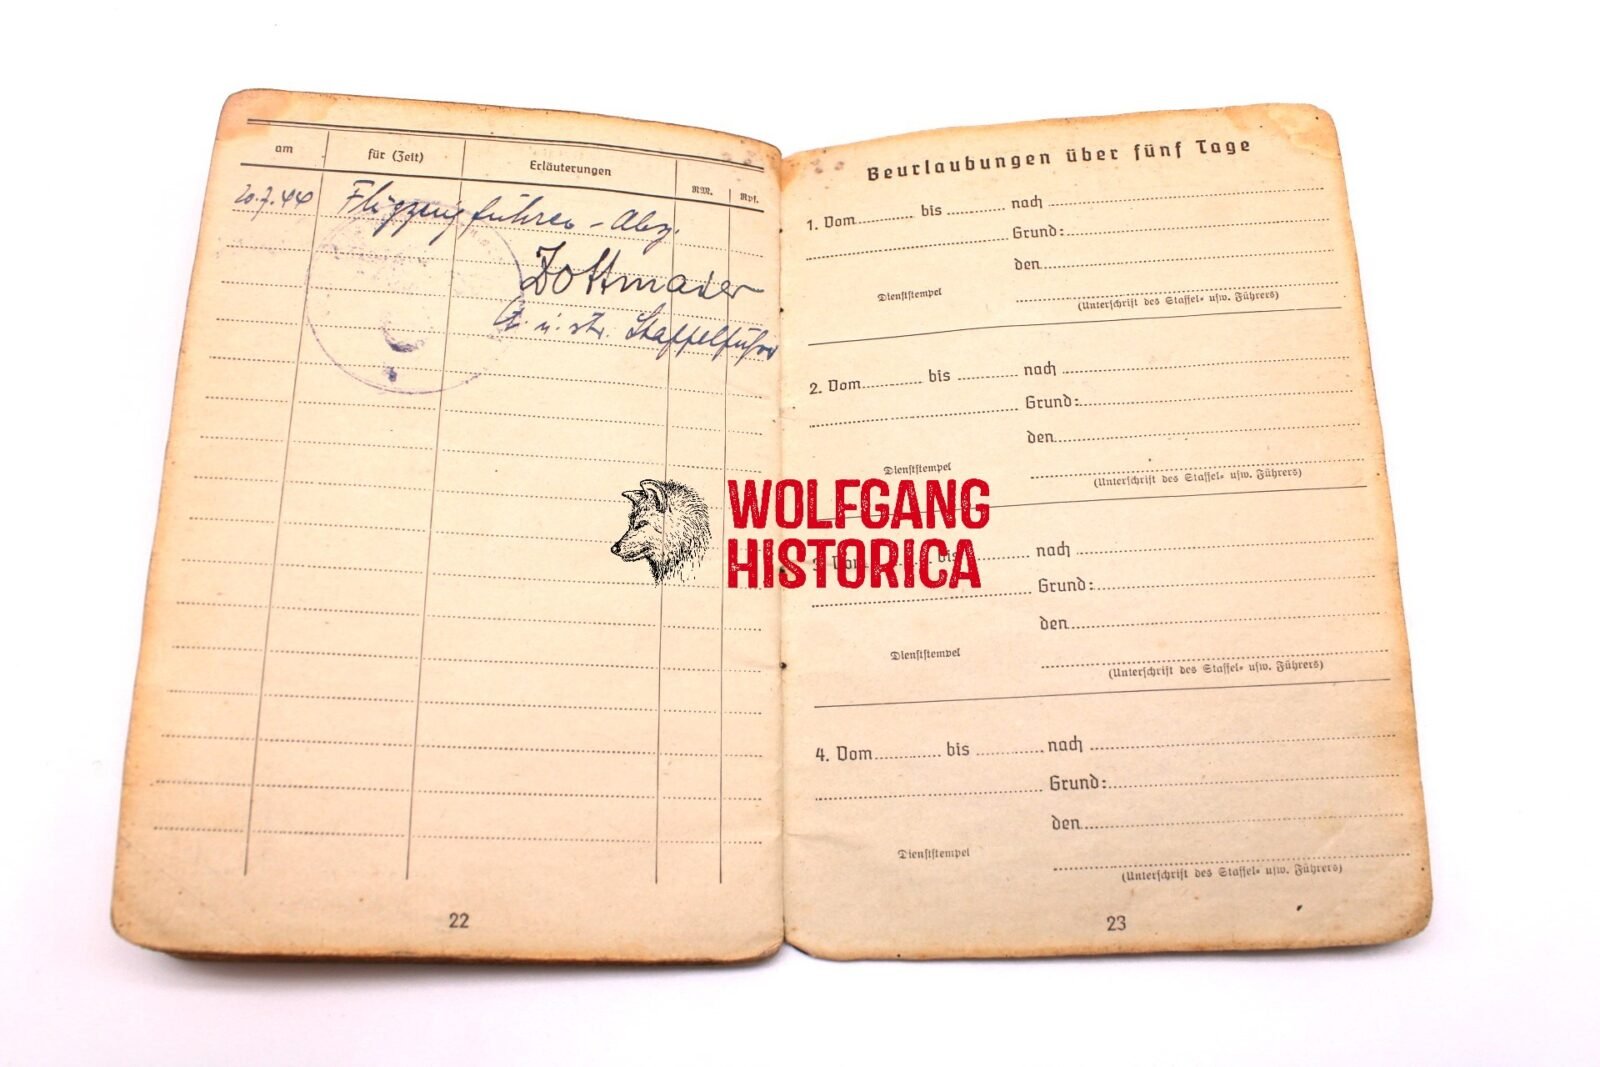 am für (Zeit) Erläuterungen RM. Rpf.
20.7.44 Flugzeugführer-Abz.
Zottmaier
u. str. Staffelführer
22
Beurlaubungen über fünf Tage
1. Vom bis nach
Grund:
den
Dienststempel
(Unterschrift des Staffel- usw. Führers)
2. Vom bis nach
Grund:
den
Dienststempel
(Unterschrift des Staffel- usw. Führers)
WOLFGANG
HISTORICA
3. Vom bis nach
Grund:
den
Dienststempel
(Unterschrift des Staffel- usw. Führers)
4. Vom bis nach
Grund:
den
Dienststempel
(Unterschrift des Staffel- usw. Führers)
23